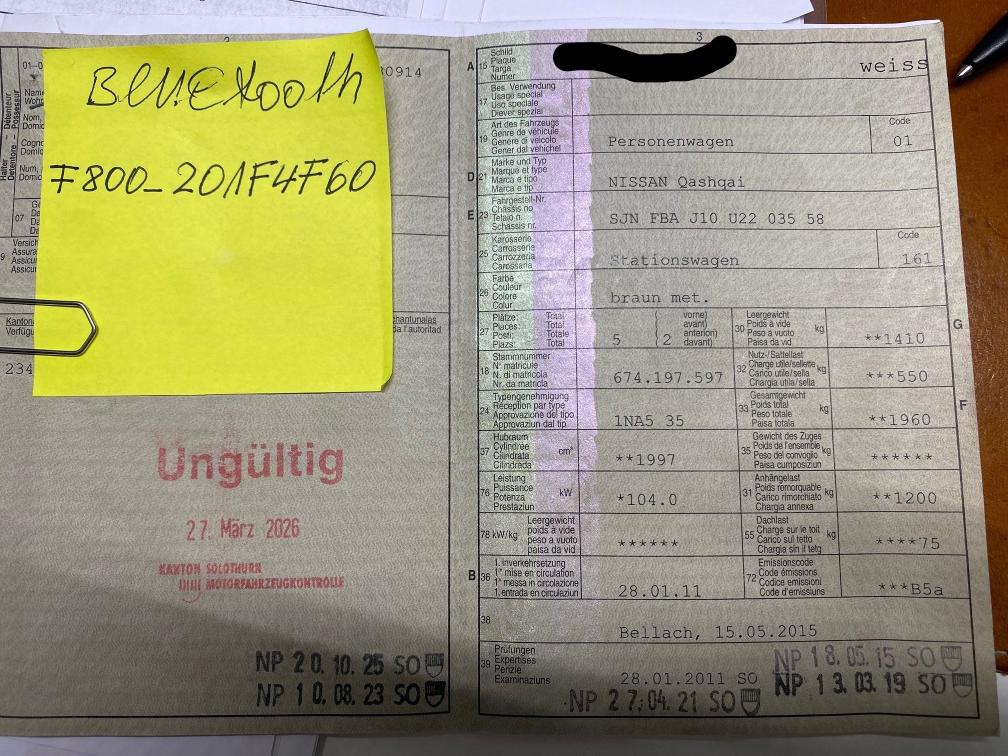 2
Bluetooth
F800_201F4F60
01-0
0914
Name
Wohn
Nom,
Domic
Cogno
Domic
Num,
Domic
Halter
Détenteur
Detentore
Possessur
07
Ge
Da
Da
Da
9
Versich
Assura
Assicur
Assicur
Kanton
Verfügu
chantunalas
da l'autoritad
234
Ungültig
27. März 2026
KANTON SOLOTHURN
MOTORFAHRZEUGKONTROLLE
NP 20.10.25 SO
NP 10.08.23 SO
3
A 15 Schild Plaque Targa Numer weiss
17 Bes. Verwendung Usage spécial Uso speciale Diever spezial
19 Art des Fahrzeugs Genre de véhicule Genere di veicolo Gener dal vehichel Personenwagen Code 01
D 21 Marke und Typ Marque et type Marca e tipo Marca e tip NISSAN Qashqai
E 23 Fahrgestell-Nr. Châssis no Telaio n. Schassis nr. SJN FBA J10 U22 035 58
25 Karosserie Carrosserie Carrozzeria Carossaria Stationswagen Code 161
26 Farbe Couleur Colore Colur braun met.
27 Plätze: Total Places: Total Posti: Totale Plazs: Total 5 (2 vorne) avant) anteriori) davant)
30 Leergewicht Poids à vide Peso a vuoto Paisa da vid kg **1410 G
18 Stammnummer N° matricule N. di matricola Nr. da matricla 674.197.597
32 Nutz-/Sattellast Charge utile/sellette Carico utile/sella Chargia utila/sella kg ***550
24 Typengenehmigung Réception par type Approvazione del tipo Approvaziun dal tip 1NA5 35
33 Gesamtgewicht Poids total Peso totale Paisa totala kg **1960 F
37 Hubraum Cylindrée Cilindrata Cilindrada cm³ **1997
35 Gewicht des Zuges Poids de l'ensemble Peso del convoglio Paisa cumposiziun kg ******
76 Leistung Puissance Potenza Prestaziun kW *104.0
31 Anhängelast Poids remorquable Carico rimorchiato Chargia annexa kg **1200
78 kW/kg Leergewicht poids à vide peso a vuoto paisa da vid ******
55 Dachlast Charge sur le toit Carico sul tetto Chargia sin il tetg kg ****75
B 36 1. Inverkehrsetzung 1re mise en circulation 1a messa in circolazione 1. entrada en circulaziun 28.01.11
72 Emissionscode Code émissions Codice emissioni Code d'emissiuns ***B5a
38 Bellach, 15.05.2015
39 Prüfungen Expertises Perizie Examinaziuns 28.01.2011 SO
NP 18.05.15 SO
NP 27.04.21 SO
NP 13.03.19 SO